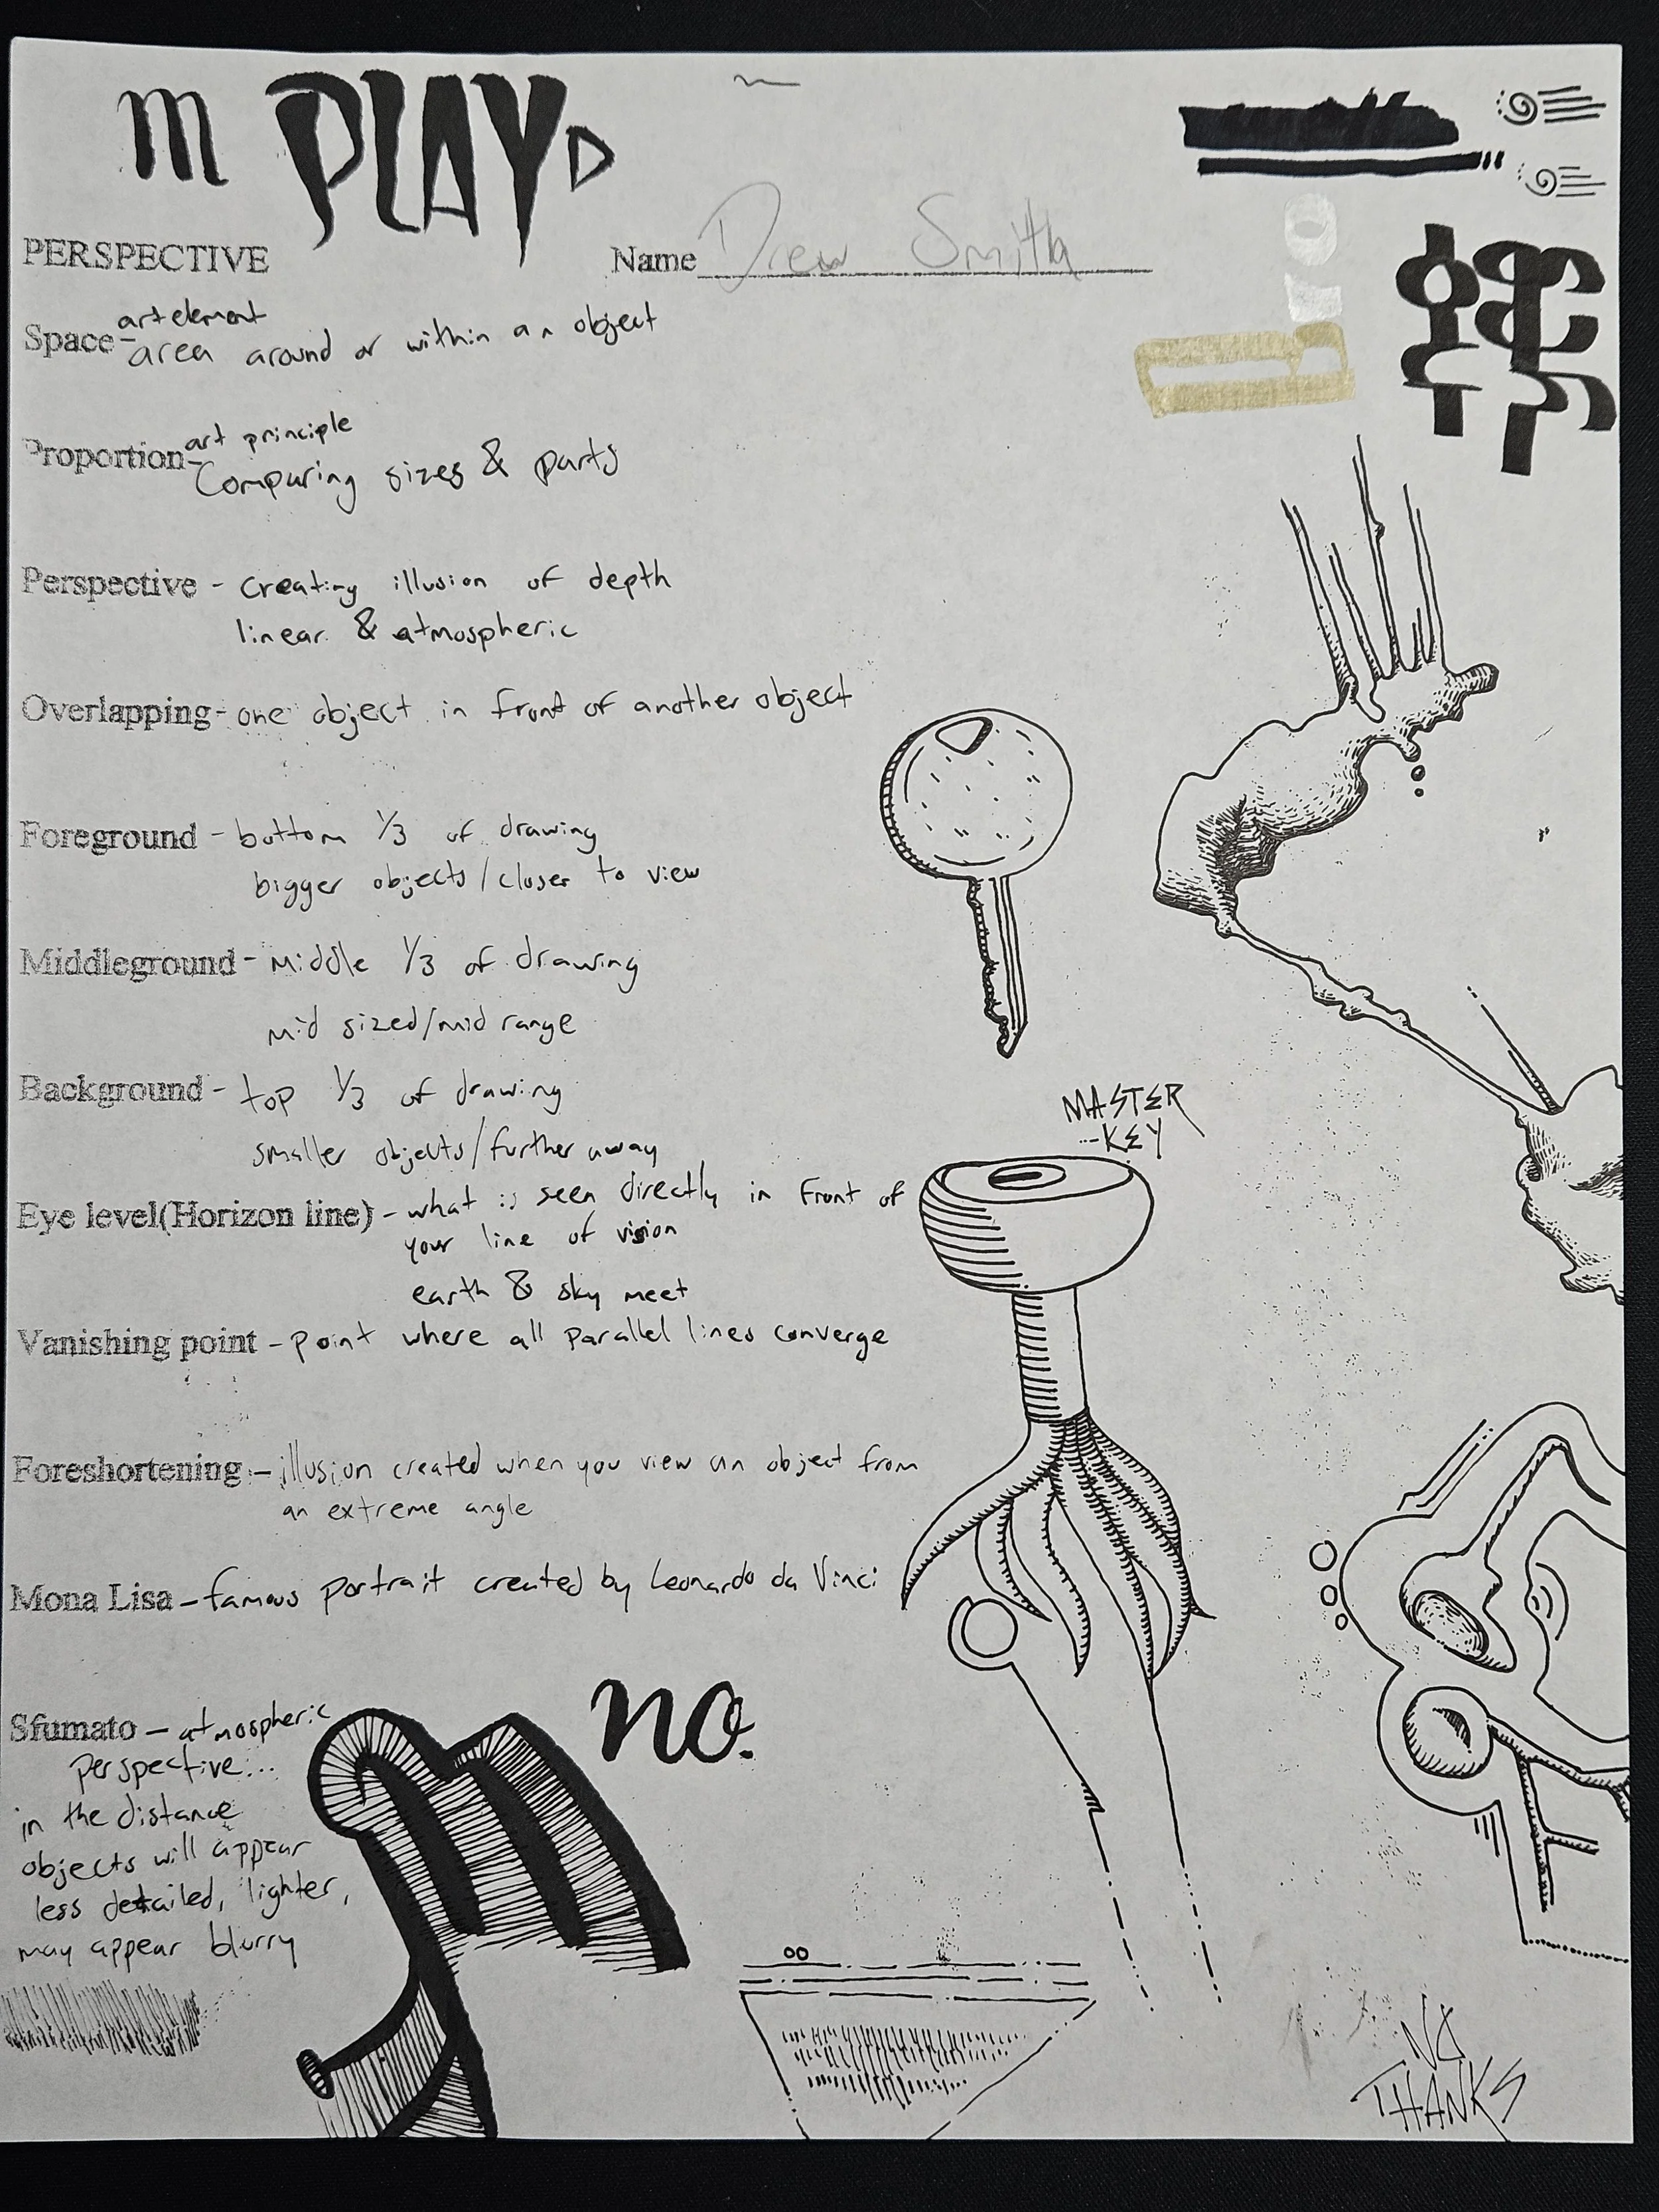 m PLAY
PERSPECTIVE
Name Drew Smith
art element
Space - area around or within an object
art principle
Proportion - Comparing sizes & parts
Perspective - creating illusion of depth
linear & atmospheric
Overlapping - one object in front of another object
Foreground - bottom 1/3 of drawing
bigger objects/closer to view
Middleground - Middle 1/3 of drawing
mid sized/mid range
Background - top 1/3 of drawing
smaller objects/further away
MASTER
-KEY
Eye level(Horizon line) - what is seen directly in front of
your line of vision
earth & sky meet
Vanishing point - point where all parallel lines converge
Foreshortening - illusion created when you view an object from
an extreme angle
Mona Lisa - famous portrait created by Leonardo da Vinci
no.
Sfumato - atmospheric
perspective...
in the distance
objects will appear
less detailed, lighter,
may appear blurry
NO
THANKS